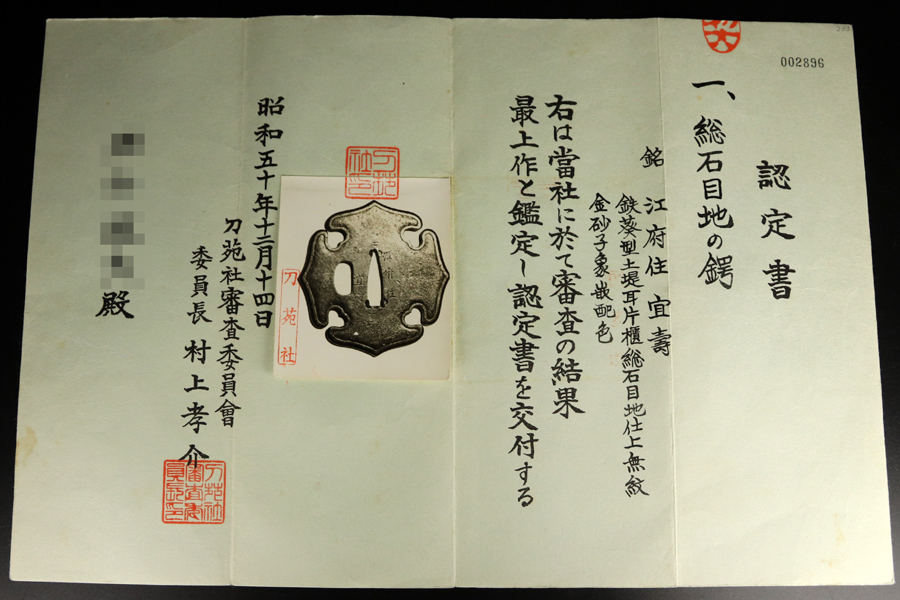 002896
認定書
一、総石目地の鍔
銘 江府住宜壽
鉄葵型土堤耳片櫃総石目地仕上無紋
金砂子象嵌配色
右は當社に於て審査の結果
最上作と鑑定し認定書を交付する
刀苑社印
刀苑社
昭和五十年十二月十四日
刀苑社審査委員會
委員長 村上孝介
殿